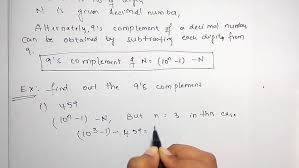 N is given decimal number,
Alternately, 9's complement of a decimal number
can be obtained by subtracting each digit from
9.
9's complement of N = (10ⁿ-1) - N
Ex: find out the 9's complement
i) 459
(10ⁿ-1) - N, But n = 3 in this case
(10³-1) - 459 =